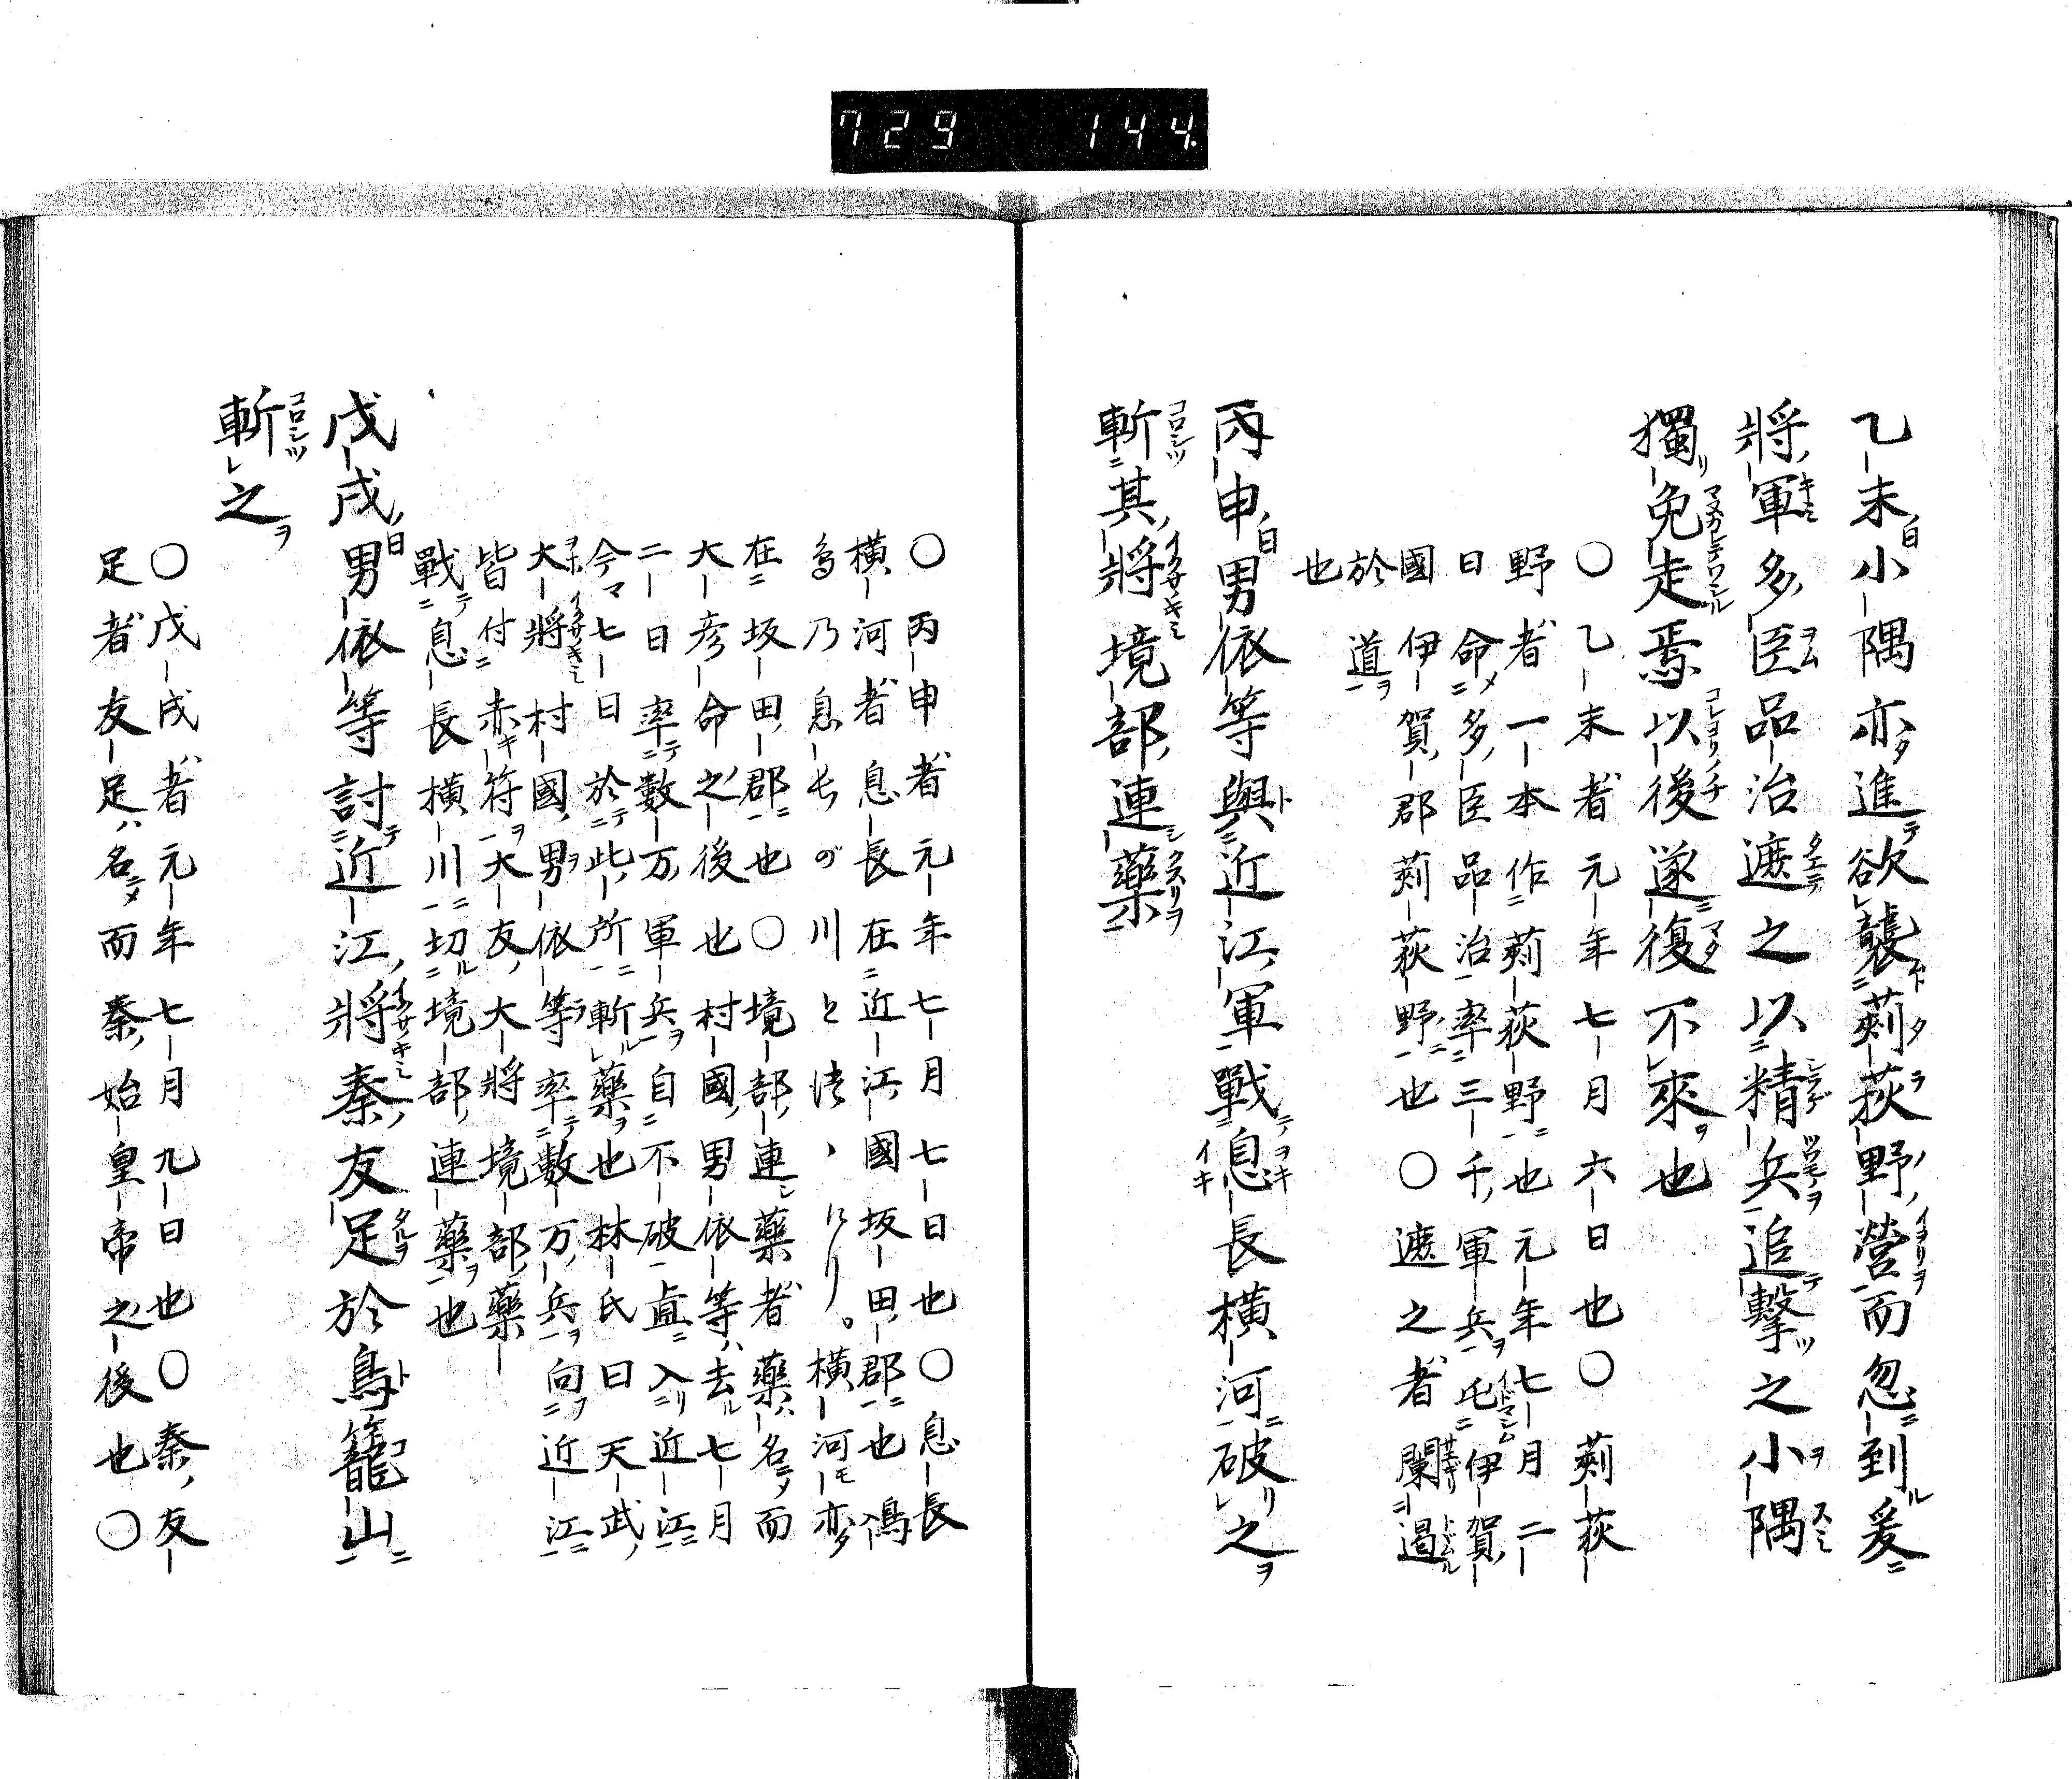 729 144
乙未小隅亦進欲襲莿萩野營而忽到爰
將軍多臣品治遮之以精兵追擊之小隅
獨免走焉以後遂復不來也
〇乙未者元年七月六日也〇莿萩
野者一本作莿萩野也元年七月二
日命多臣品治率三千軍兵屯伊賀
國伊賀郡莿萩野也〇遮之者闌遏
於道
也
丙申男依等與近江軍戰息長橫河破之
斬其將境部連藥
〇丙申者元年七月七日也〇息長
橫河者息長在近江國坂田郡也
乃息 川と 橫河亦
在坂田郡也〇境部連藥者藥名而
大彥命之後也村國男依等去七月
二日率數万軍兵自不破直入近江
今七日於此所斬藥也林氏曰天武
大將村國男依等率數万兵向近江
皆付赤符大友大將境部藥
戰息長橫川切境部連藥也
戊戌男依等討近江將秦友足於鳥籠山
斬之
〇戊戌者元年七月九日也〇秦友
足者友足名而秦始皇帝之後也〇